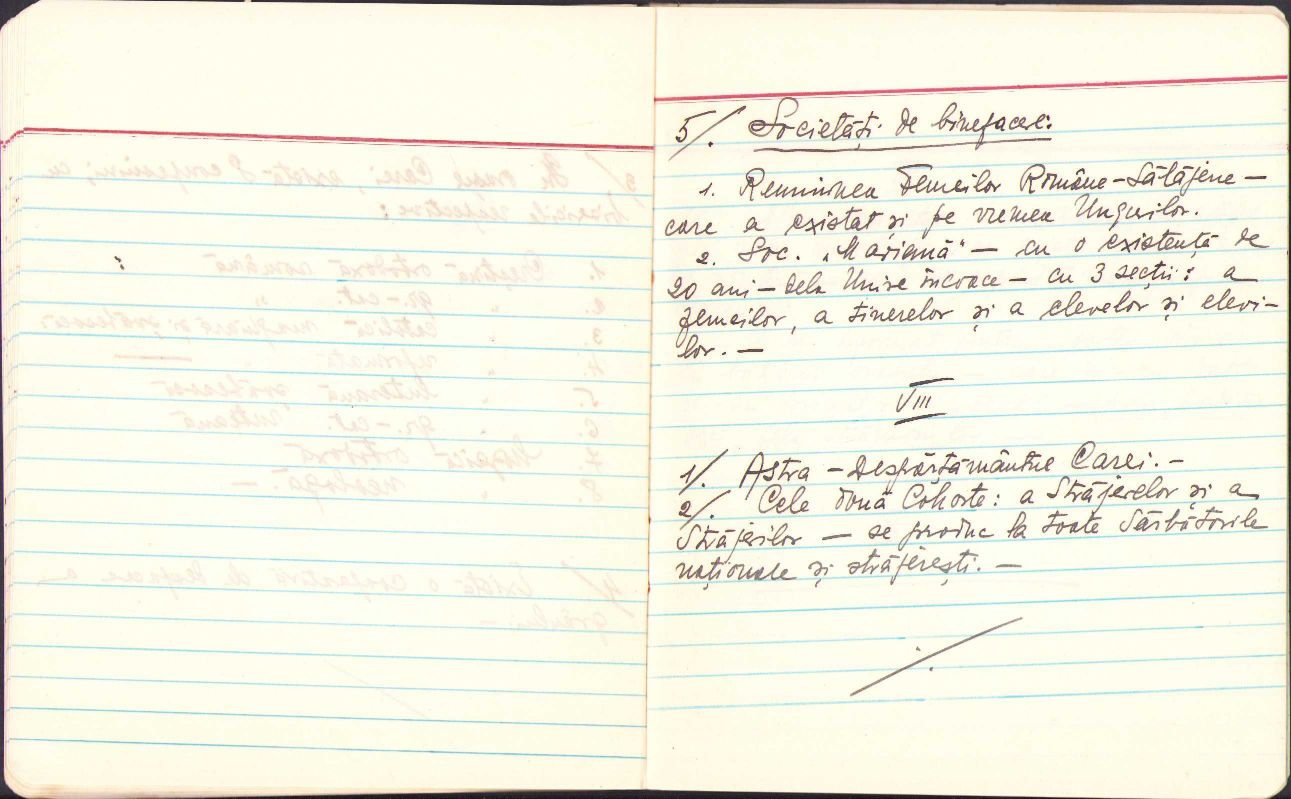 5/. Societăți de binefacere:
1. Reuniunea Femeilor Române-Sălăjene —
care a existat și pe vremea Ungurilor.
2. Soc. „Mariană" — cu o existență de
20 ani — dela Unire încoace — cu 3 secții: a
femeilor, a tinerelor și a elevelor și elevi-
lor. —
VIII
1/. Astra — Despărțământul Carei. —
2/. Cele două Cohorte: a Străjerelor și a
Străjerilor — se produc la toate Sărbătorile
naționale și străjerești. —